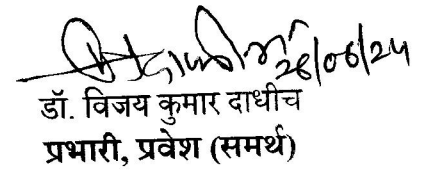 26/06/24
डॉ. विजय कुमार दाधीच
प्रभारी, प्रवेश (समर्थ)